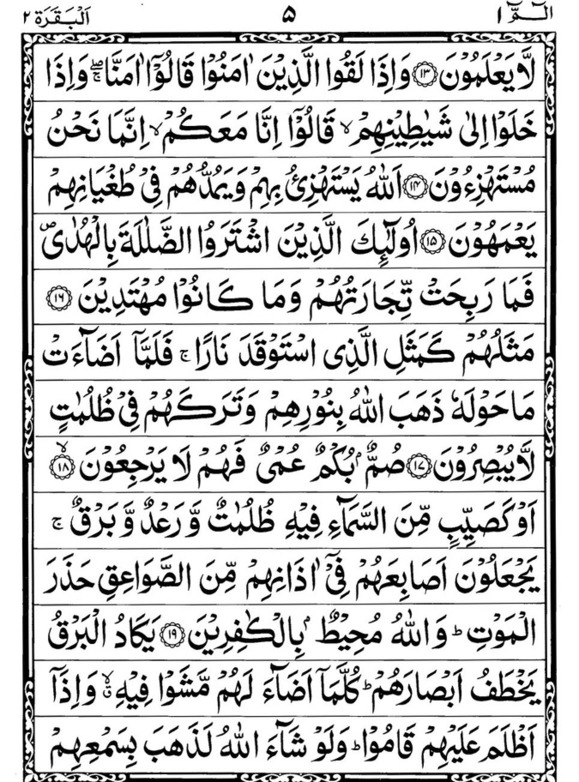 الٓمّٓ ١ ۵ اَلْبَقَرَة ٢
لَّا یَعْلَمُوْنَ ﴿۱۳﴾ وَاِذَا لَقُوا الَّذِیْنَ اٰمَنُوْا قَالُوْۤا اٰمَنَّا ۖۚ وَاِذَا
خَلَوْا اِلٰی شَیٰطِیْنِهِمْ ۙ قَالُوْۤا اِنَّا مَعَكُمْ ۙ اِنَّمَا نَحْنُ
مُسْتَهْزِءُوْنَ ﴿۱۴﴾ اَللّٰهُ یَسْتَهْزِئُ بِهِمْ وَیَمُدُّهُمْ فِیْ طُغْیَانِهِمْ
یَعْمَهُوْنَ ﴿۱۵﴾ اُولٰٓئِكَ الَّذِیْنَ اشْتَرَوُا الضَّلٰلَةَ بِالْهُدٰی ۪
فَمَا رَبِحَتْ تِّجَارَتُهُمْ وَمَا كَانُوْا مُهْتَدِیْنَ ﴿۱۶﴾
مَثَلُهُمْ كَمَثَلِ الَّذِی اسْتَوْقَدَ نَارًا ۚ فَلَمَّاۤ اَضَآءَتْ
مَا حَوْلَهٗ ذَهَبَ اللّٰهُ بِنُوْرِهِمْ وَتَرَكَهُمْ فِیْ ظُلُمٰتٍ
لَّا یُبْصِرُوْنَ ﴿۱۷﴾ صُمٌّۢ بُكْمٌ عُمْیٌ فَهُمْ لَا یَرْجِعُوْنَ ﴿۱۸﴾ ۙ
اَوْ كَصَیِّبٍ مِّنَ السَّمَآءِ فِیْهِ ظُلُمٰتٌ وَّرَعْدٌ وَّبَرْقٌ ۚ
یَجْعَلُوْنَ اَصَابِعَهُمْ فِیْۤ اٰذَانِهِمْ مِّنَ الصَّوَاعِقِ حَذَرَ
الْمَوْتِ ؕ وَاللّٰهُ مُحِیْطٌۢ بِالْكٰفِرِیْنَ ﴿۱۹﴾ یَكَادُ الْبَرْقُ
یَخْطَفُ اَبْصَارَهُمْ ؕ كُلَّمَاۤ اَضَآءَ لَهُمْ مَّشَوْا فِیْهِ ۙۗ وَاِذَاۤ
اَظْلَمَ عَلَیْهِمْ قَامُوْا ؕ وَلَوْ شَآءَ اللّٰهُ لَذَهَبَ بِسَمْعِهِمْ